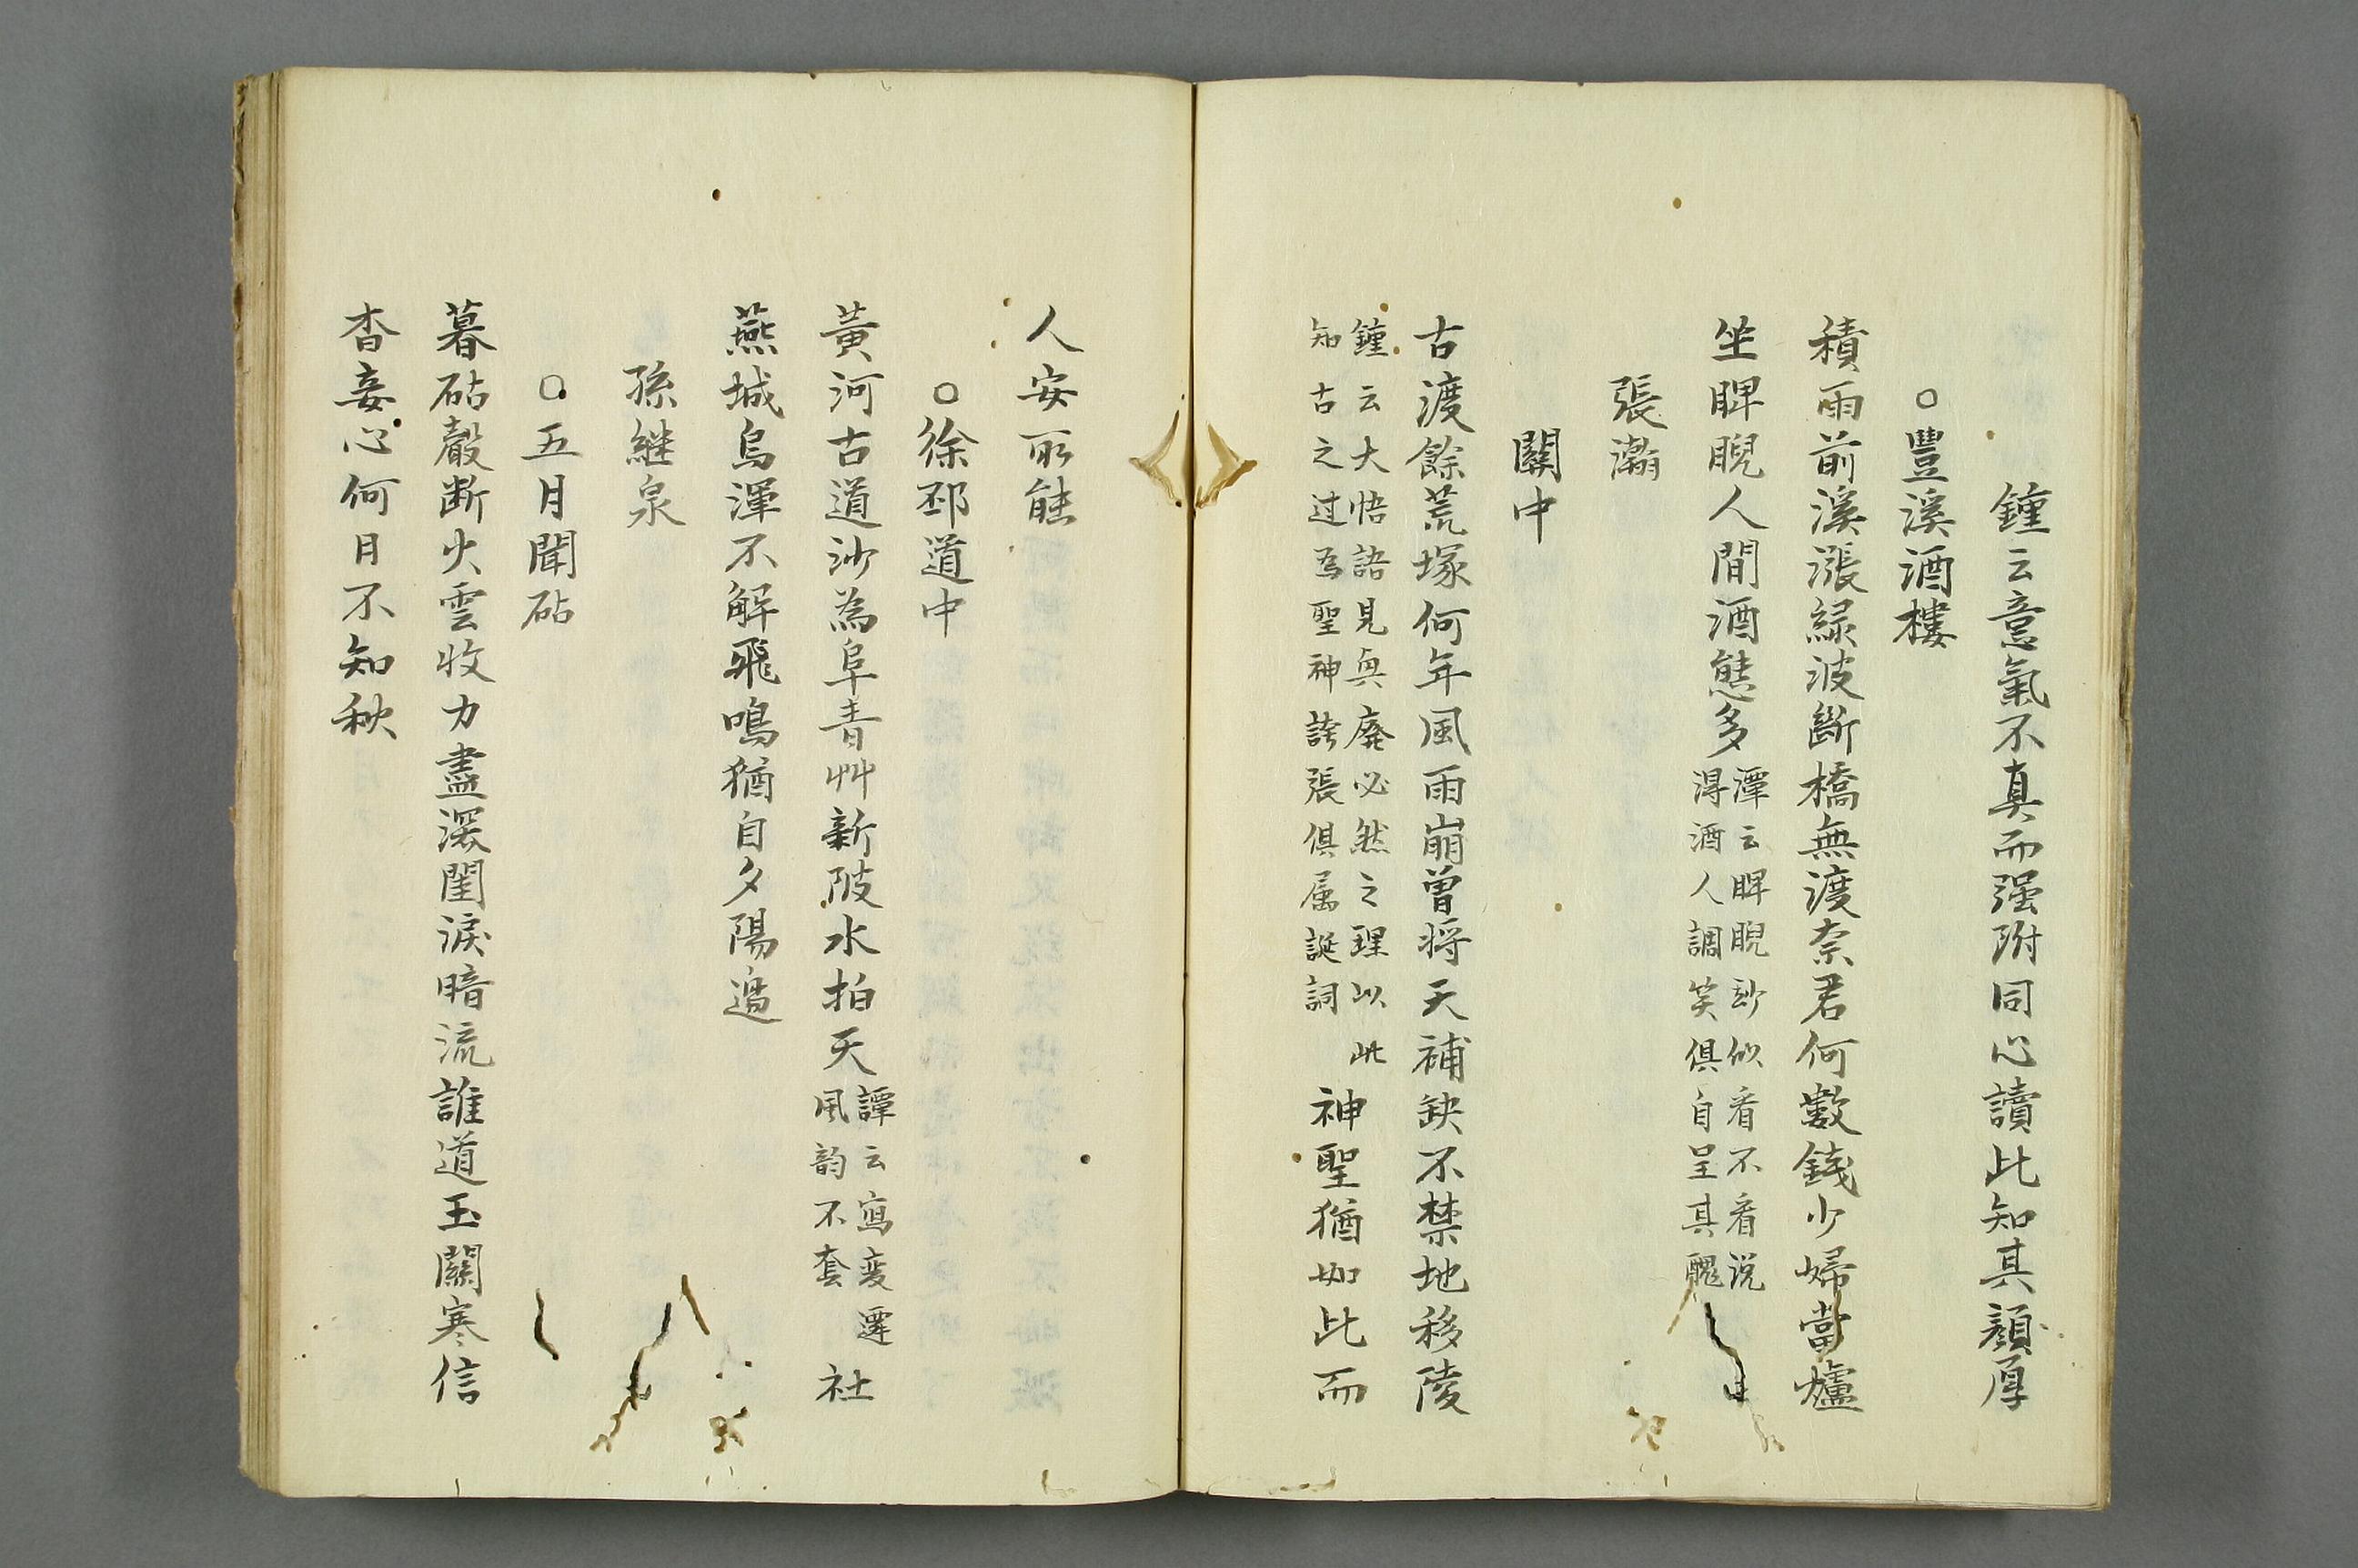 鍾云意氣不真而强附同心讀此知其顔厚
○豐溪酒樓
積雨前溪漲緑波斷橋無渡奈君何數錢少婦當爐
坐睥睨人間酒態多
潭云睥睨玅似看不看说
淂酒人調笑俱自呈其醜
張瀚
關中
古渡餘荒塚何年風雨崩曾将天補缺不禁地移陵
鍾云大悟語見真廢必然之理以此
知古之过為聖神誇張俱属誕詞
神聖猶如此而
人安所能
○徐邳道中
黃河古道沙為阜青艸新陂水拍天
譚云寫变遷
風韵不套
社
燕城烏渾不解飛鳴猶自夕陽邊
孫継泉
○五月聞砧
暮砧聲断火雲收力盡深閨淚暗流誰道玉關寒信
杳妾心何月不知秋